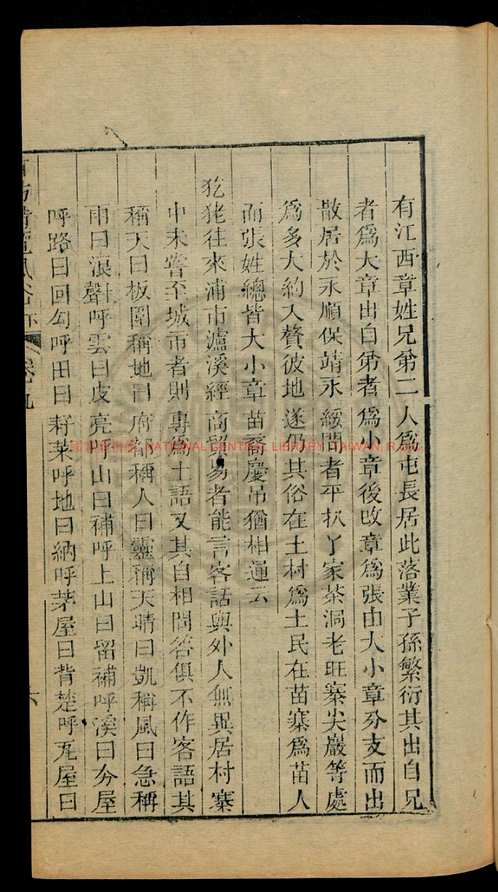 有江西章姓兄弟二人爲屯長居此落業子孫繁衍其出自兄
者爲大章出自弟者爲小章後改章爲張由大小章分支而出
散居於永順保靖永綏間者平扒丫家茶洞老旺寨尖巖等處
爲多大約入贅彼地遂仍其俗在土村爲土民在苗寨爲苗人
而張姓總皆大小章苗裔慶吊猶相通云
犵狫往來浦市瀘溪經商貿易者能言客話與外人無異居村寨
中未嘗至城市者則專爲土語又其自相問答俱不作客語其
稱天曰板圍稱地曰府都稱人曰靈稱天晴曰凱稱風曰急稱
雨曰浪聲呼雲曰皮亮呼山曰補呼上山曰留補呼溪曰夯屋
呼路曰回勾呼田曰耔萊呼地曰納呼茅屋曰背楚呼瓦屋曰
卷九
六
NATIONAL CENTRAL LIBRARY, TAIWAN, R